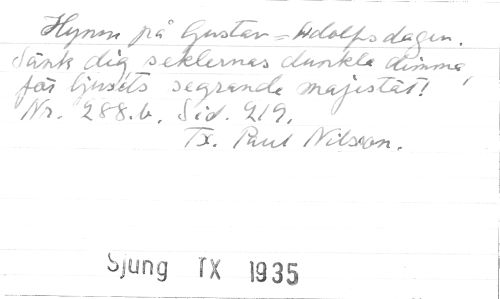 Hymn på Gustav-Adolfsdagen.
Sänk dig seklernas dunkla dimma,
för ljusets segrande majestät!
Nr. 288.b. Sid. 219.
Tx. Paul Nilsson.
Sjung TX 1935